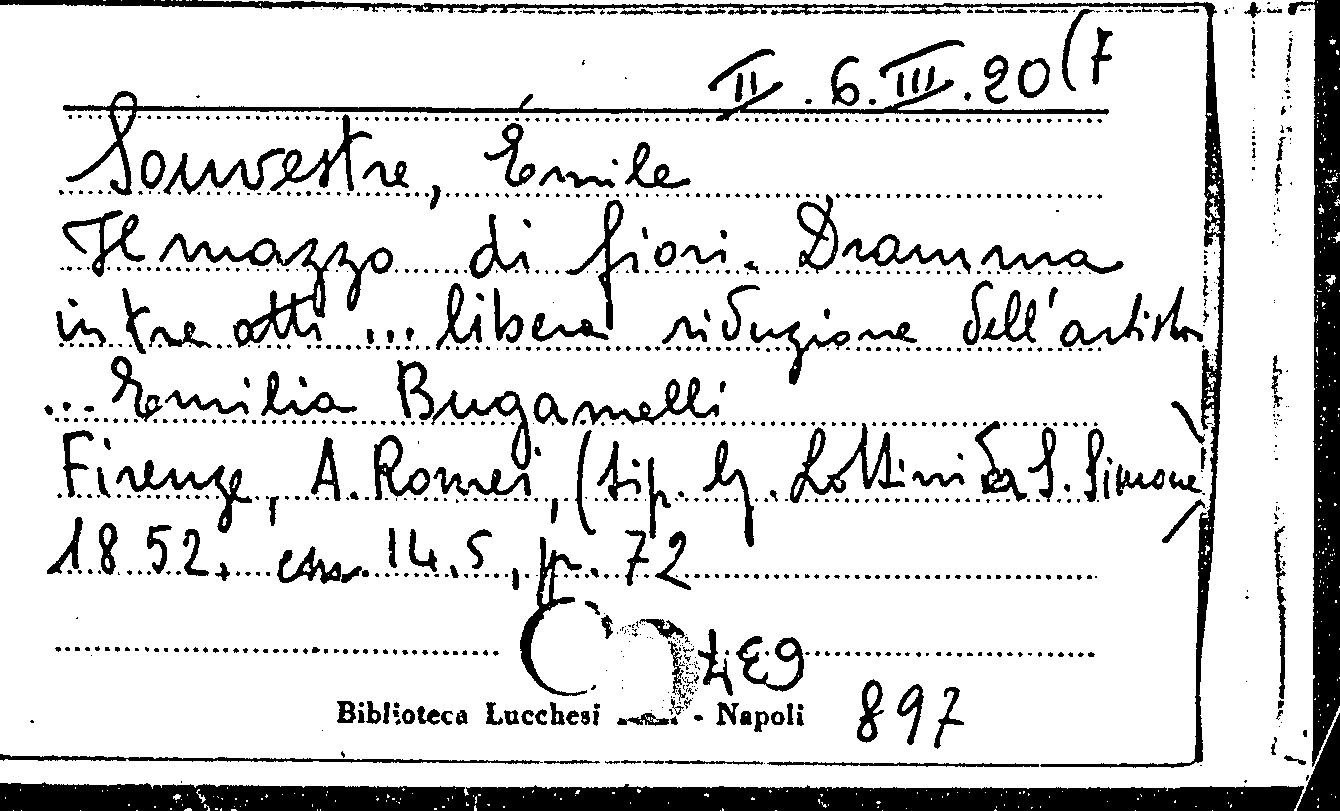 II.6.III.20(7
Souvestre, Émile
Il mazzo di fiori. Dramma
in tre atti ... libera riduzione dell'artista
... Emilia Bugamelli
Firenze, A. Romei, (tip. G. Lottini da S. Simone
1852. cm. 14.5, p. 72
Biblioteca Lucchesi - Napoli
897